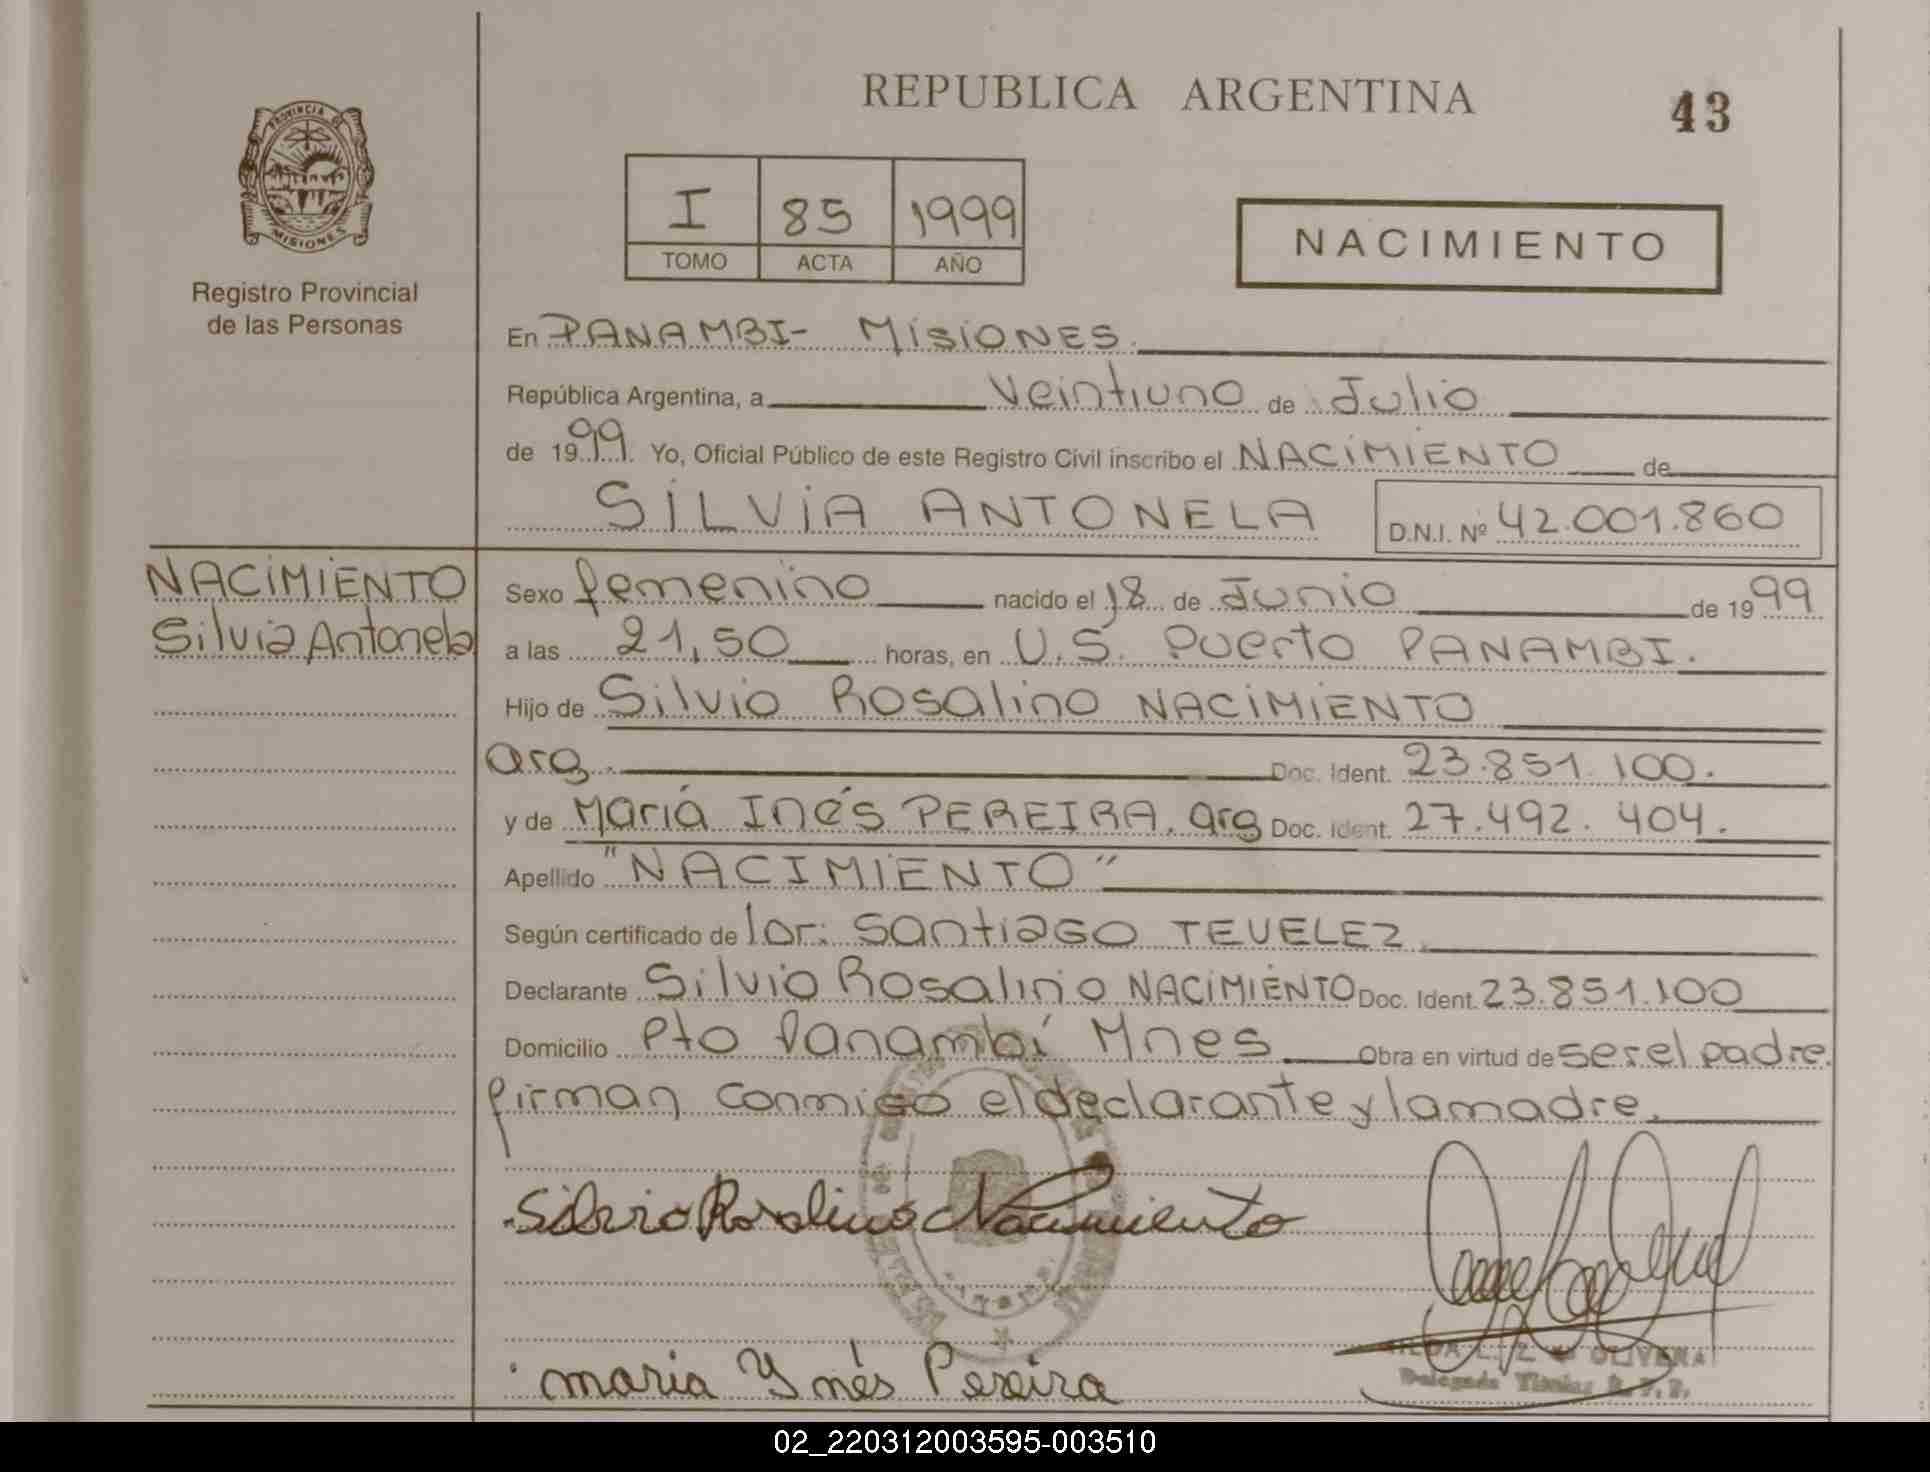 REPUBLICA ARGENTINA
43
PROVINCIA DE
MISIONES
Registro Provincial
de las Personas
I 85 1999
TOMO ACTA AÑO
NACIMIENTO
En PANAMBI- MISIONES.
República Argentina, a Veintiuno de Julio
de 1999. Yo, Oficial Público de este Registro Civil inscribo el NACIMIENTO de
SILVIA ANTONELA D.N.I. Nº 42.001.860
NACIMIENTO
Silvia Antonela
Sexo femenino nacido el 18 de Junio de 1999
a las 21,50 horas, en U.S. Puerto PANAMBI.
Hijo de Silvio Rosalino NACIMIENTO
arg. Doc. Ident. 23.851.100.
y de María Inés PEREIRA. arg Doc. Ident. 27.492.404.
Apellido "NACIMIENTO"
Según certificado de Santiago TEVELEZ
Declarante Silvio Rosalino NACIMIENTO Doc. Ident. 23.851.100
Domicilio Pto Panambí Mnes Obra en virtud de ser el padre.
firman conmigo el declarante y la madre.
Silvio Rosalino Nacimiento
maria Ynés Pereira
OLIVERA
Delegada Titular R.P.P.
02_220312003595-003510